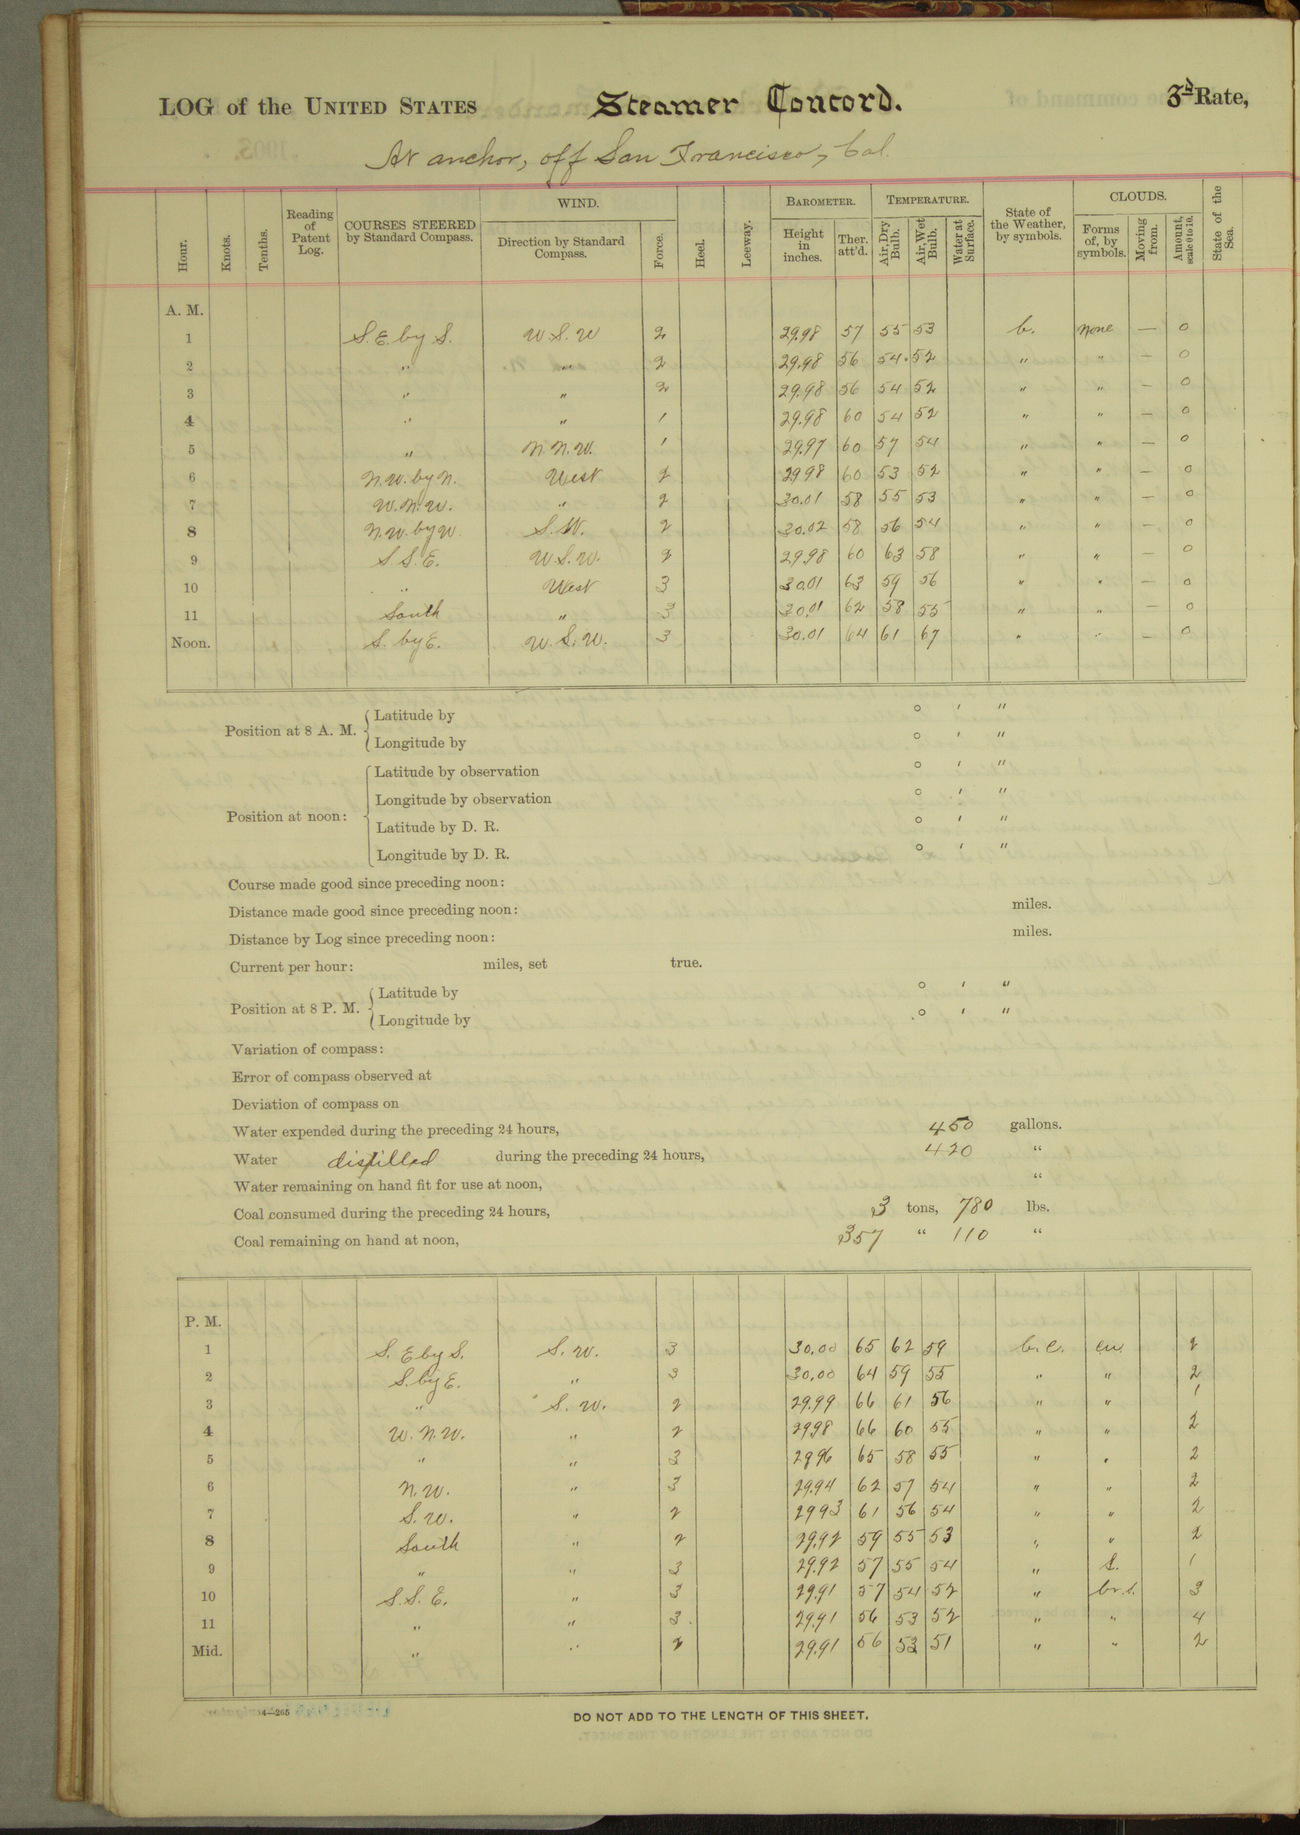 LOG of the UNITED STATES Steamer Concord. 3d Rate,
At anchor, off San Francisco, Cal.
Hour. Knots. Tenths. Reading of Patent Log. COURSES STEERED by Standard Compass. WIND. Direction by Standard Compass. Force. Heel. Leeway. BAROMETER. Height in inches. Ther. att'd. TEMPERATURE. Air, Dry Bulb. Air, Wet Bulb. Water at Surface. State of the Weather, by symbols. CLOUDS. Forms of, by symbols. Moving from. Amount, scale 0 to 10. State of the Sea.
A. M.
1 S.E. by S. W.S.W 2 29.98 57 55 53 b. none — 0
2 " " 2 29.98 56 54 52 " " — 0
3 " " 2 29.98 56 54 52 " " — 0
4 " " 1 29.98 60 54 52 " " — 0
5 " N.N.W. 1 29.97 60 57 54 " " — 0
6 N.W. by N. West 2 29 98 60 53 52 " " — 0
7 W.N.W. " 2 30.01 58 55 53 " " — 0
8 N.W. by W S.W. 2 30.02 58 56 54 " " — 0
9 S.S.E. W.S.W. 2 29.98 60 63 58 " " — 0
10 " West 3 30.01 63 59 56 " " — 0
11 South " 3 30.01 62 58 55 " " — 0
Noon. S. by E. W.S.W. 3 30.01 64 61 67 " " — 0
Position at 8 A. M. { Latitude by ° ' "
Longitude by ° ' "
Position at noon: { Latitude by observation ° ' "
Longitude by observation ° ' "
Latitude by D. R. ° ' "
Longitude by D. R. ° ' "
Course made good since preceding noon:
Distance made good since preceding noon: miles.
Distance by Log since preceding noon: miles.
Current per hour: miles, set true.
Position at 8 P. M. { Latitude by ° ' "
Longitude by ° ' "
Variation of compass:
Error of compass observed at
Deviation of compass on
Water expended during the preceding 24 hours, 450 gallons.
Water distilled during the preceding 24 hours, 420 "
Water remaining on hand fit for use at noon, "
Coal consumed during the preceding 24 hours, 3 tons, 780 lbs.
Coal remaining on hand at noon, 357 " 110 "
P. M.
1 S. E by S. S.W. 3 30.00 65 62 59 b.c. cu. 2
2 S. by E. " 3 30.00 64 59 55 " " 2
3 " S.W. 2 29.99 66 61 56 " " 1
4 W.N.W. " 2 29.98 66 60 55 " " 2
5 " " 3 29 96 65 58 55 " " 2
6 N.W. " 3 29.94 62 57 54 " " 2
7 S.W. " 2 29 93 61 56 54 " " 2
8 South " 2 29.92 59 55 53 " " 2
9 " " 3 29.92 57 55 54 " s. 1
10 S.S.E. " 3 29.91 57 54 52 " 3
11 " " 3 29.91 56 53 52 " " 4
Mid. " " 2 29.91 56 53 51 " " 2
4—265
DO NOT ADD TO THE LENGTH OF THIS SHEET.